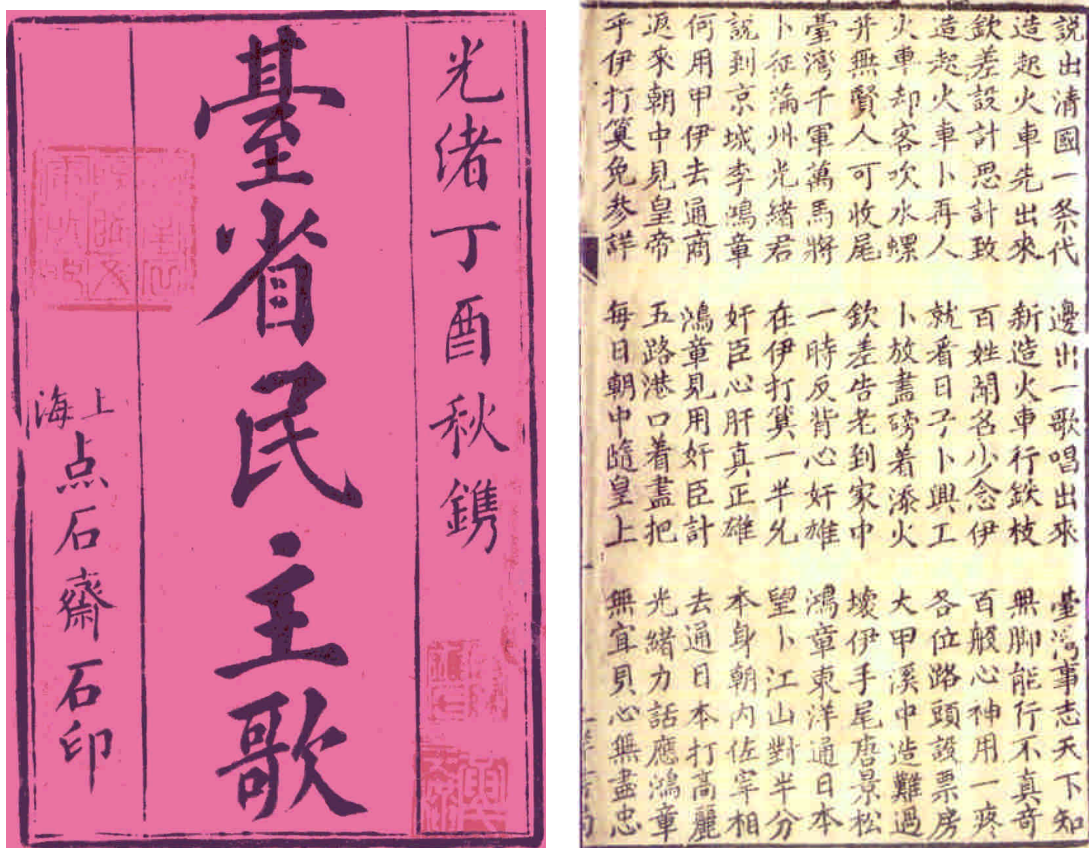 光緒丁酉秋鐫
臺省民主歌
上海点石齋石印
說出清國一条代 邊出一歌唱出來 臺湾事志天下知
造起火車先出來 新造火車行鉄枝 無脚能行不真奇
欽差設計思計致 百姓聞名少念伊 百般心神用一疼
造起火車卜再人 就看日子卜興工 各位路頭設票房
火車却客吹水螺 卜放盡磅着添火 大甲溪中造難過
并無賢人可收尾 欽差告老到家中 壞伊手尾唐景松
臺灣千軍萬馬將 一時反背心奸雄 鴻章東洋通日本
卜征滿州光緒君 在伊打算一半允 望卜江山對半分
說到京城李鴻章 奸臣心肝真正雄 本身朝內佐宰相
何用甲伊去通商 鴻章見用奸臣計 去通日本打高麗
返來朝中見皇帝 五路港口着盡把 光緒力話應鴻章
乎伊打算免參詳 每日朝中隨皇上 無宜貝心無盡忠